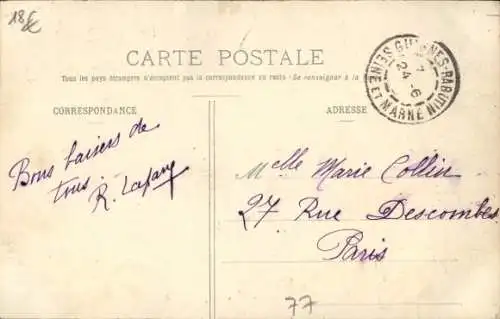 18 £
CARTE POSTALE
Tous les pays étrangers n'acceptent pas la correspondance au recto - Se renseigner à la
CORRESPONDANCE
ADRESSE
GUIGNES-RABUTIN
7
24 -6
SEINE ET MARNE
Bons baisers de
tous.
R. Lafary
Melle Marie Collin
27 Rue Descombes
Paris
77